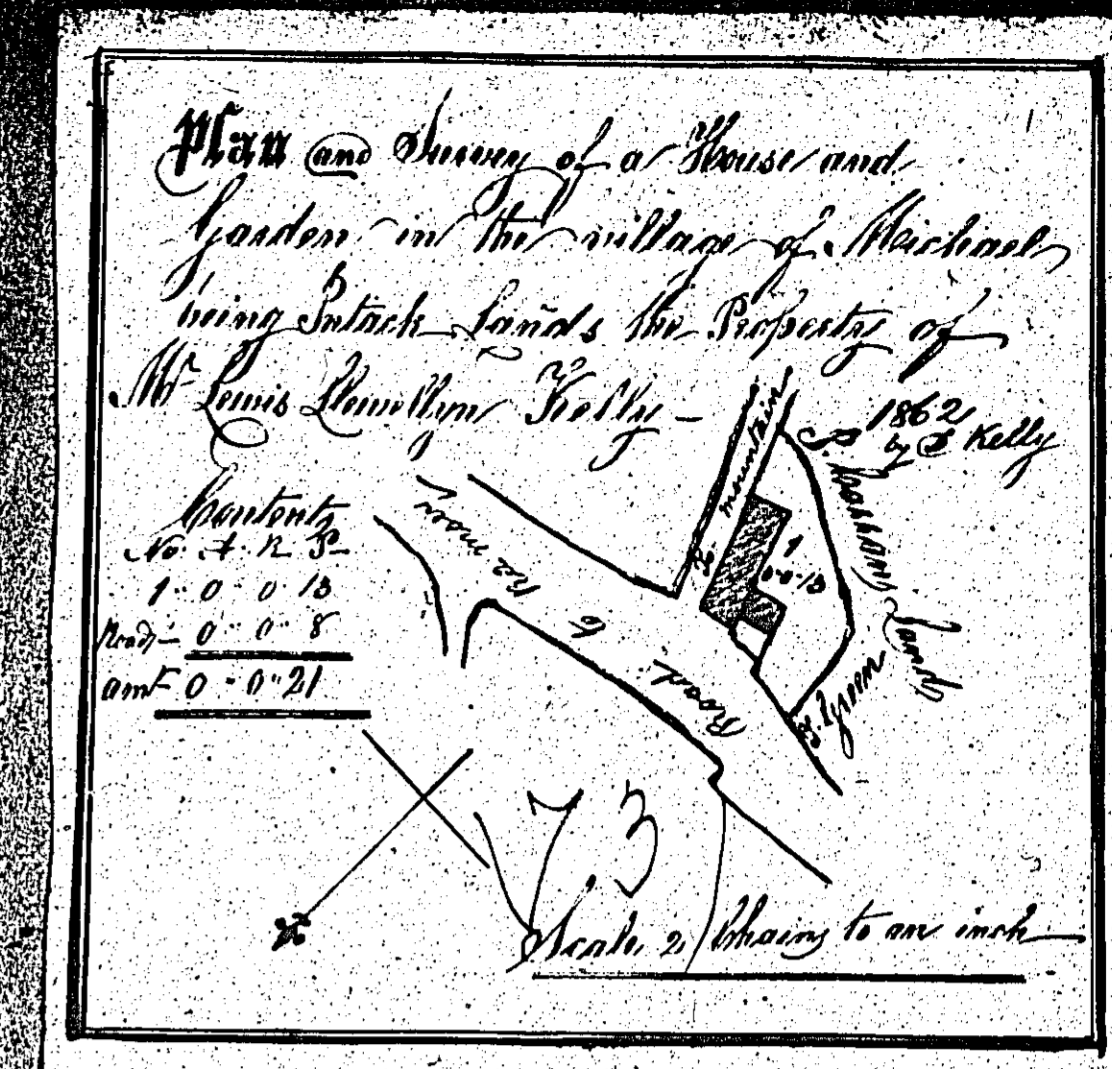 Plan and Survey of a House and
Garden in the village of Michael
being Intack Lands the Property of
Mr Lewis Llewellyn Kelly -
1862
by Kelly
Contents
No. A. R. P.
1 .. 0 0 13
Road - 0 .. 0 .. 8
amt 0 .. 0 .. 21
to mountain
1
0..0..13
Lands
Green
Road to Ramsey
73
Scale 2 Chains to an inch